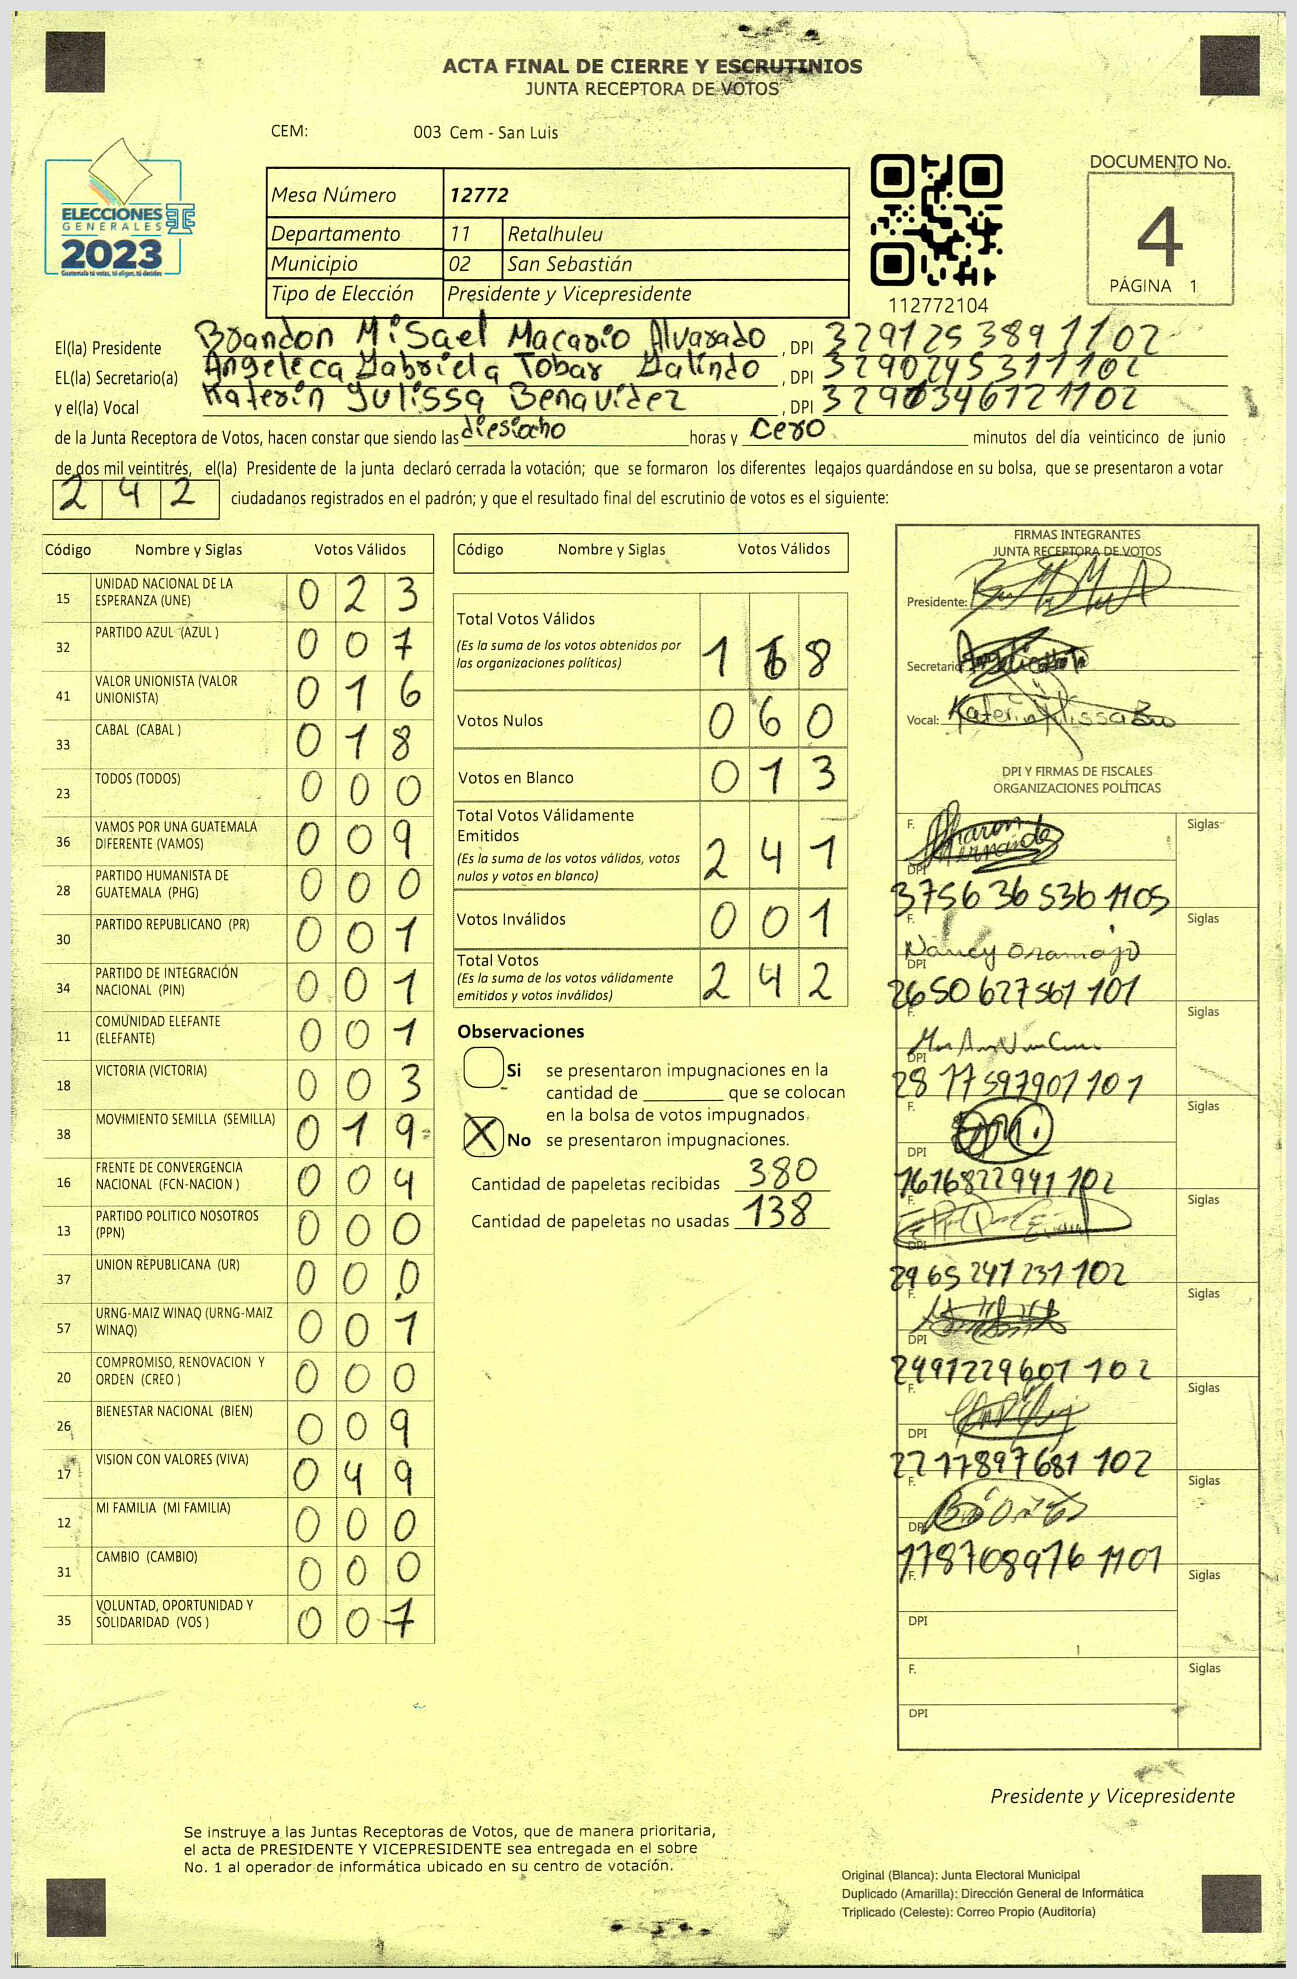 ACTA FINAL DE CIERRE Y ESCRUTINIOS
JUNTA RECEPTORA DE VOTOS
CEM: 003 Cem - San Luis
ELECCIONES
GENERALES
2023
Guatemala tú votas, tú eliges, tú decides
Mesa Número 12772
Departamento 11 Retalhuleu
Municipio 02 San Sebastián
Tipo de Elección Presidente y Vicepresidente
112772104
DOCUMENTO No.
4
PÁGINA 1
El(la) Presidente Brandon Misael Macario Alvarado , DPI 3291253891102
EL(la) Secretario(a) Angeleca Gabriela Tobar Galindo , DPI 3290245311102
y el(la) Vocal Katerin Yulissa Benavidez , DPI 3290346721102
de la Junta Receptora de Votos, hacen constar que siendo las diesiocho horas y cero minutos del día veinticinco de junio
de dos mil veintitrés, el(la) Presidente de la junta declaró cerrada la votación; que se formaron los diferentes legajos guardándose en su bolsa, que se presentaron a votar
242 ciudadanos registrados en el padrón; y que el resultado final del escrutinio de votos es el siguiente:
Código Nombre y Siglas Votos Válidos
15 UNIDAD NACIONAL DE LA ESPERANZA (UNE) 023
32 PARTIDO AZUL (AZUL ) 007
41 VALOR UNIONISTA (VALOR UNIONISTA) 016
33 CABAL (CABAL ) 018
23 TODOS (TODOS) 000
36 VAMOS POR UNA GUATEMALA DIFERENTE (VAMOS) 009
28 PARTIDO HUMANISTA DE GUATEMALA (PHG) 000
30 PARTIDO REPUBLICANO (PR) 001
34 PARTIDO DE INTEGRACIÓN NACIONAL (PIN) 001
11 COMUNIDAD ELEFANTE (ELEFANTE) 001
18 VICTORIA (VICTORIA) 003
38 MOVIMIENTO SEMILLA (SEMILLA) 019
16 FRENTE DE CONVERGENCIA NACIONAL (FCN-NACION ) 004
13 PARTIDO POLITICO NOSOTROS (PPN) 000
37 UNION REPUBLICANA (UR) 000
57 URNG-MAIZ WINAQ (URNG-MAIZ WINAQ) 001
20 COMPROMISO, RENOVACION Y ORDEN (CREO ) 000
26 BIENESTAR NACIONAL (BIEN) 009
17 VISION CON VALORES (VIVA) 049
12 MI FAMILIA (MI FAMILIA) 000
31 CAMBIO (CAMBIO) 000
35 VOLUNTAD, OPORTUNIDAD Y SOLIDARIDAD (VOS ) 007
Código Nombre y Siglas Votos Válidos
Total Votos Válidos
(Es la suma de los votos obtenidos por las organizaciones políticas) 168
Votos Nulos 060
Votos en Blanco 013
Total Votos Válidamente Emitidos
(Es la suma de los votos válidos, votos nulos y votos en blanco) 241
Votos Inválidos 001
Total Votos
(Es la suma de los votos válidamente emitidos y votos inválidos) 242
Observaciones
Si se presentaron impugnaciones en la
cantidad de ________ que se colocan
en la bolsa de votos impugnados.
X No se presentaron impugnaciones.
Cantidad de papeletas recibidas 380
Cantidad de papeletas no usadas 138
FIRMAS INTEGRANTES
JUNTA RECEPTORA DE VOTOS
Presidente:
Secretario
Vocal: Katerin
DPI Y FIRMAS DE FISCALES
ORGANIZACIONES POLÍTICAS
F. Sharon Hernández Siglas
DPI 375636536 1105
F. Nancy Siglas
DPI 2650627561101
F. Siglas
DPI 2817597901101
F. Siglas
DPI 1616822941102
F. Siglas
DPI 2965241231102
F. Siglas
DPI 2491229601102
F. Siglas
DPI 2217897681102
F. Siglas
DPI 1787089761101
F. Siglas
DPI
F. Siglas
DPI
Presidente y Vicepresidente
Se instruye a las Juntas Receptoras de Votos, que de manera prioritaria,
el acta de PRESIDENTE Y VICEPRESIDENTE sea entregada en el sobre
No. 1 al operador de informática ubicado en su centro de votación.
Original (Blanca): Junta Electoral Municipal
Duplicado (Amarilla): Dirección General de Informática
Triplicado (Celeste): Correo Propio (Auditoría)